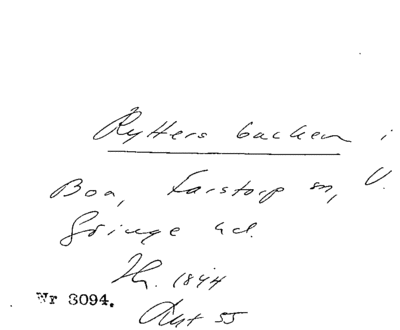 Ryttersbacken i
Boa, Farstorp sn, V.
Göinge hd.
1844
Nr 3094.
55